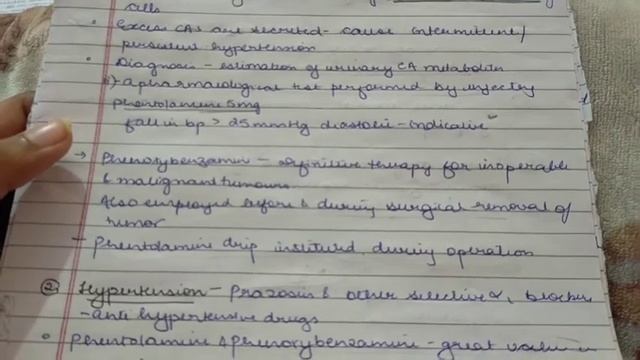 cells
• Excess CAs are secreted - cause intermittent/
persistent hypertension
• Diagnosis - estimation of urinary CA metabolites
a pharmacological test performed by injecting
phentolamine 5mg
fall in bp > 25 mmHg diastolic - indicative
→ Phenoxybenzamine - definitive therapy for inoperable
& malignant tumours
Also employed before & during surgical removal of
tumor
- phentolamine drip instituted during operation
② Hypertension - Prazosin & other selective α, blockers
- anti hypertensive drugs
• phentolamine & phenoxybenzamine - great value in